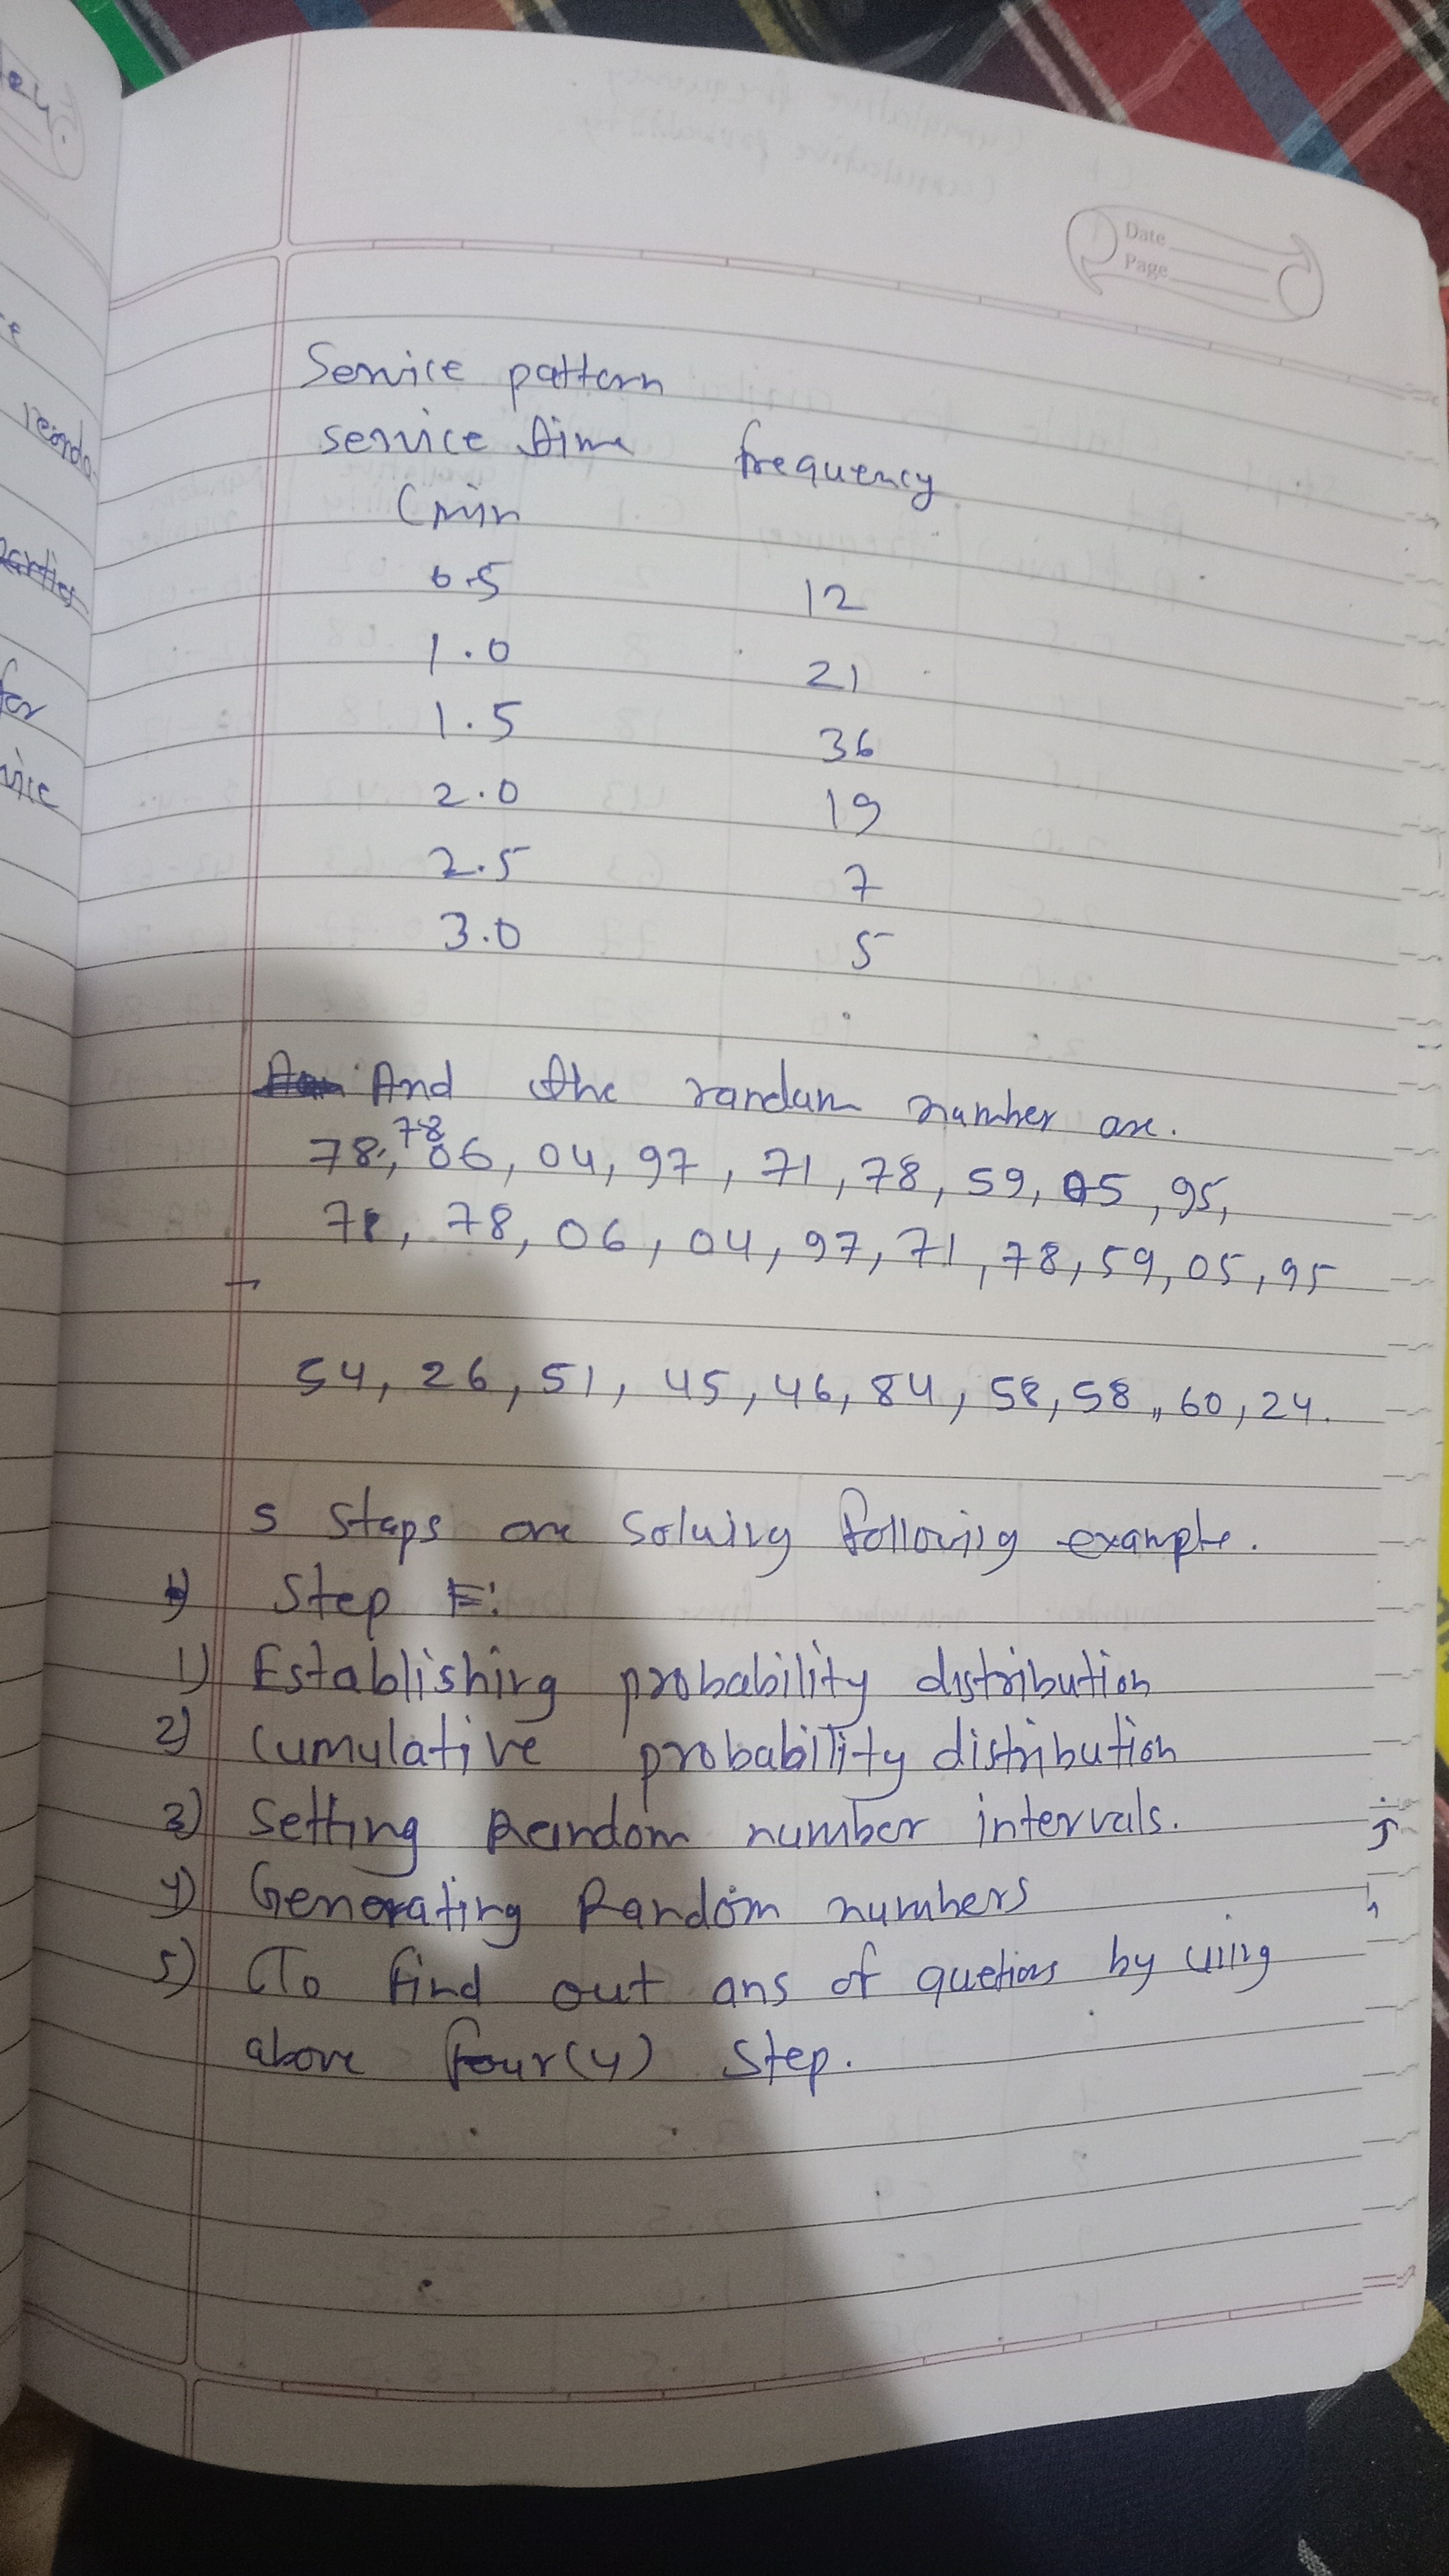 Date
Page
Service pattern
service time frequency
(min
0.5 12
1.0 21
1.5 36
2.0 19
2.5 7
3.0 5
And the random number are.
78
78, 06, 04, 97, 71, 78, 59, 05, 95,
71, 78, 06, 04, 97, 71, 78, 59, 05, 95
54, 26, 51, 45, 46, 84, 58, 58, 60, 24.
5 Steps are Solving following example.
Step
1) Establishing probability distribution
2) Cumulative probability distribution
3) Setting Random number intervals.
4) Generating Random numbers
5) To find out ans of quetions by using
above four(4) Step.